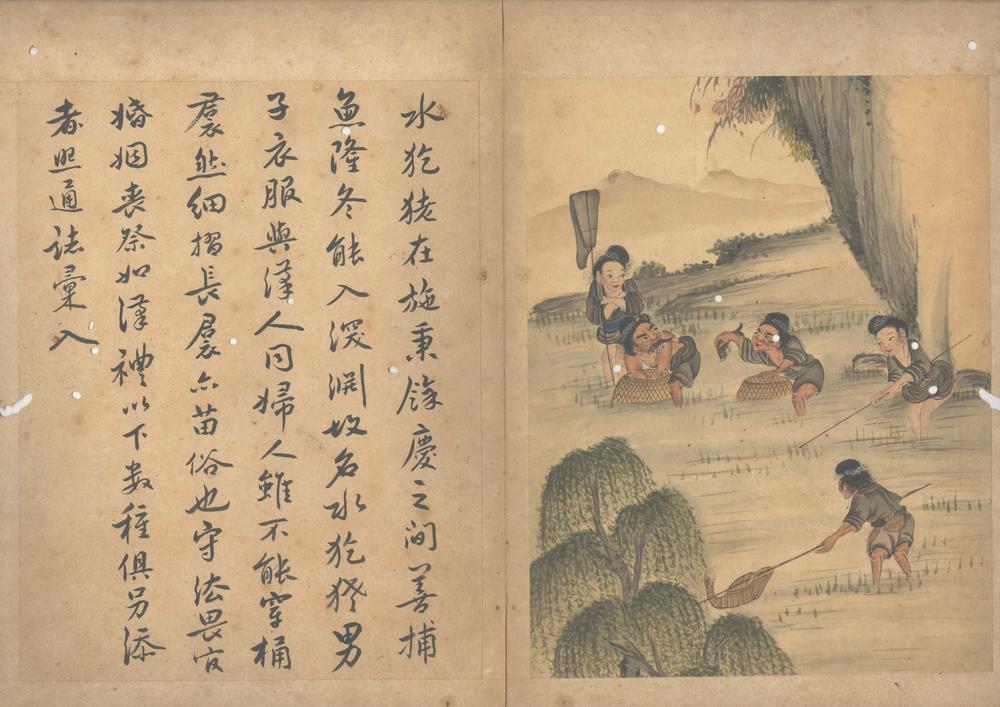 水犵狫在施秉餘慶之間善捕
魚隆冬能入深淵故名水犵男
子衣服與漢人同婦人雖不能穿桶
裠然細摺長裠亦苗俗也守法畏官
婚姻喪祭如漢禮以下数種俱另添
者照通誌彙入